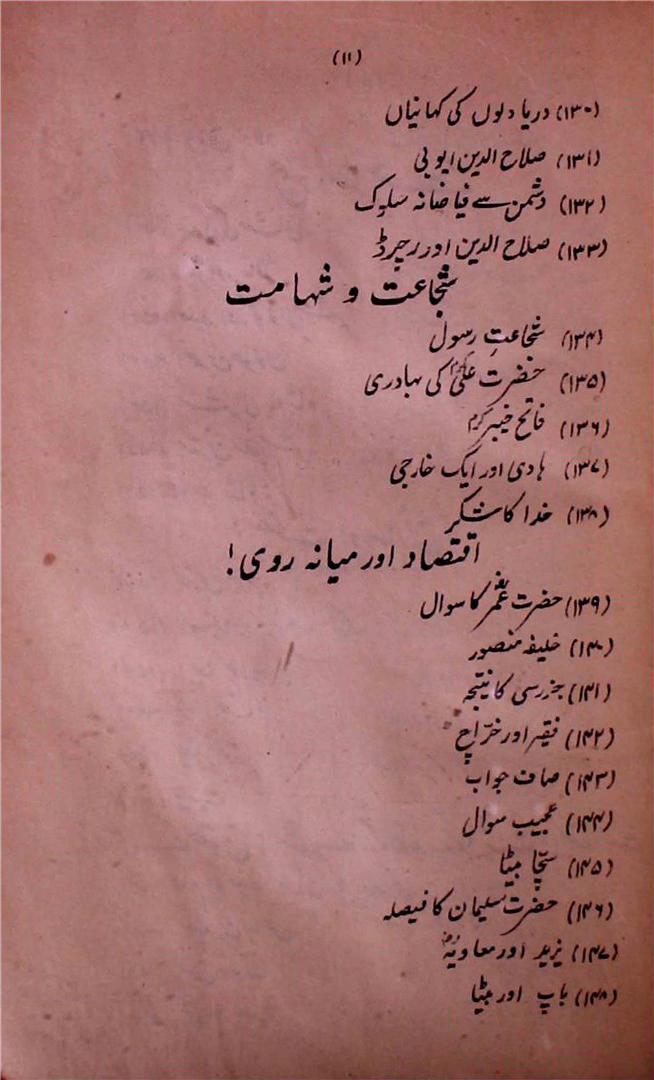 (۱۱)
(۱۳۰) دریا دلوں کی کہانیاں
(۱۳۱) صلاح الدین ایوبی
(۱۳۲) دشمن سے فیاضانہ سلوک
(۱۳۳) صلاح الدین اور رچرڈ
شجاعت و شہامت
(۱۳۴) شجاعتِ رسول
(۱۳۵) حضرت علیؓ کی بہادری
(۱۳۶) فاتح خیبر
(۱۳۷) ہادی اور ایک خارجی
(۱۳۸) خدا کا شکر
اقتصاد اور میانہ روی!
(۱۳۹) حضرت عمرؓ کا سوال
(۱۴۰) خلیفہ منصور
(۱۴۱) جزرسی کا نتیجہ
(۱۴۲) فقیر اور خرّاچ
(۱۴۳) صاف جواب
(۱۴۴) عجیب سوال
(۱۴۵) سچّا بیٹا
(۱۴۶) حضرت سلیمان کا فیصلہ
(۱۴۷) یزید اور معاویہؓ
(۱۴۸) باپ اور بیٹا